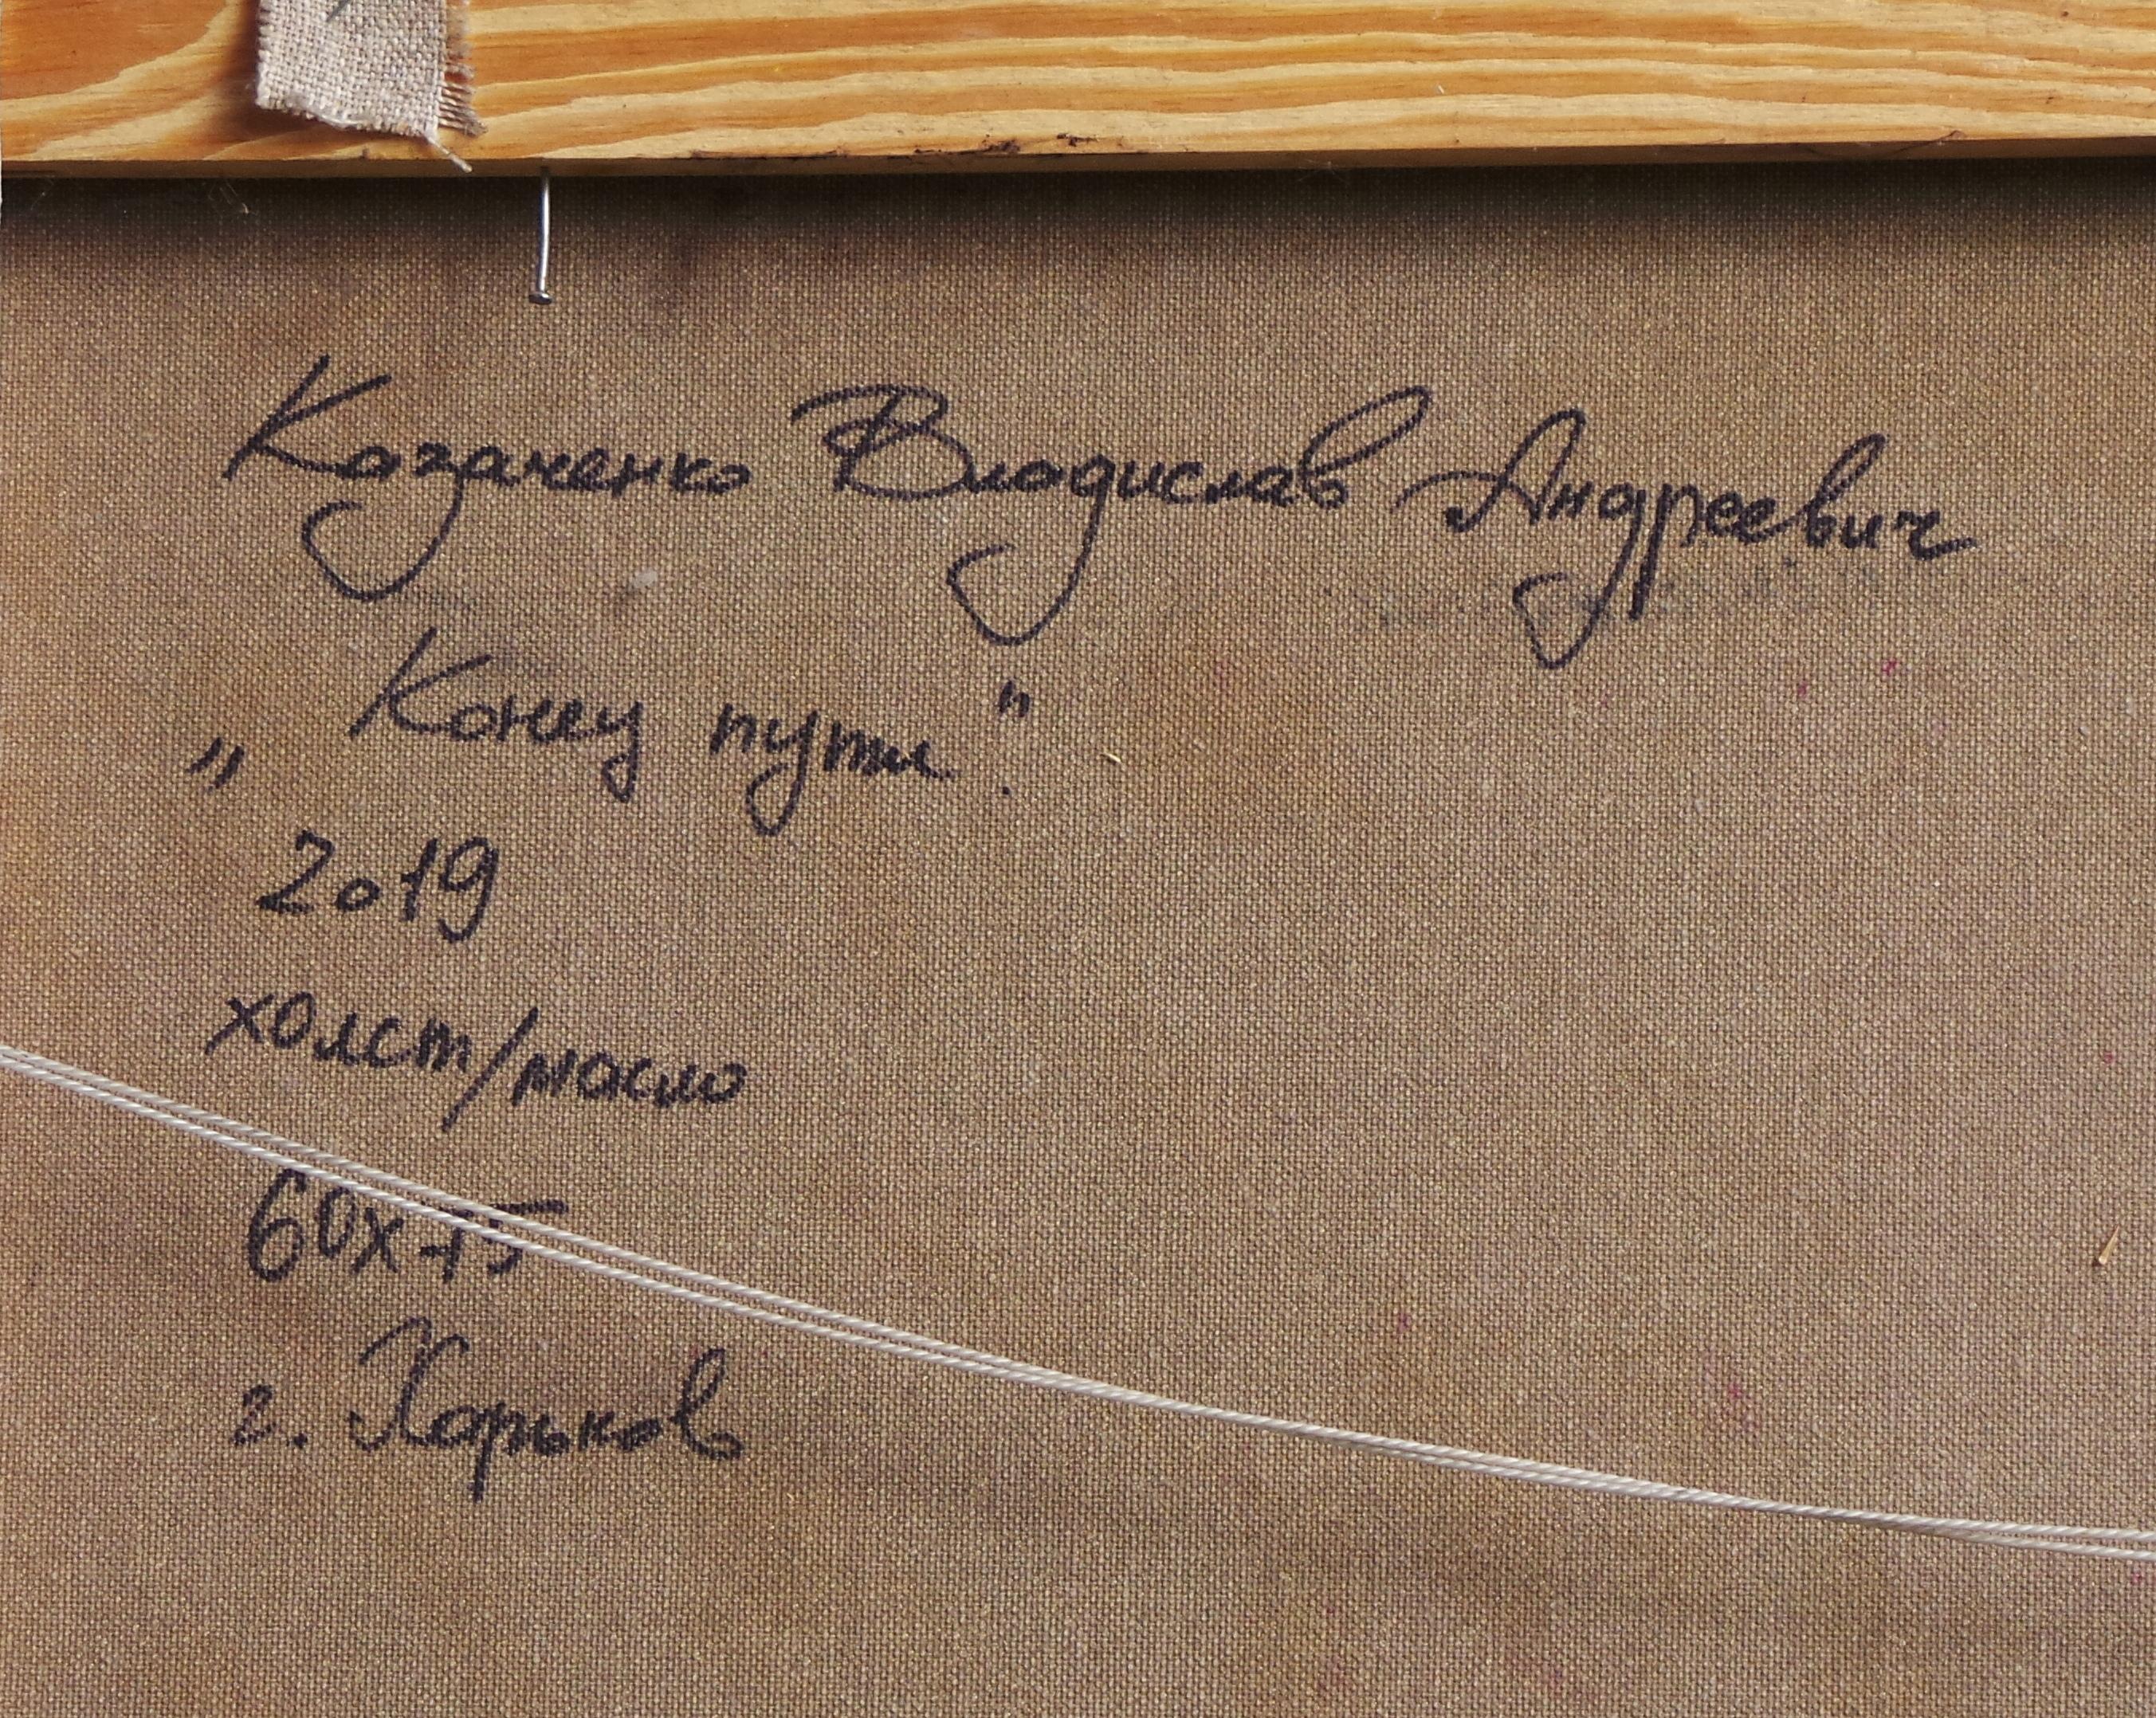 Казаченко Владислав Андреевич
„Конец пути".
2019
холст/масло
60х75
г. Харьков